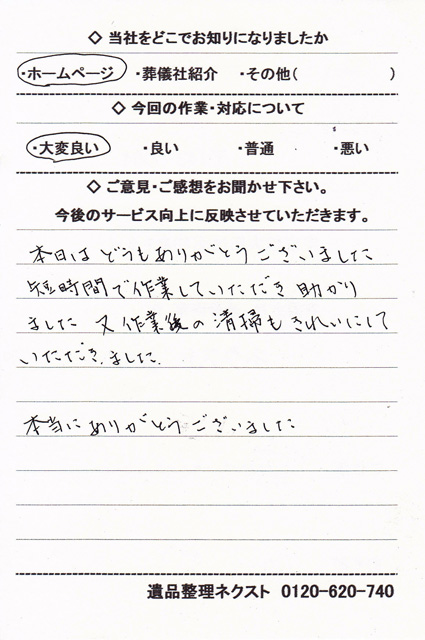 ◇ 当社をどこでお知りになりましたか
・ホームページ ・葬儀社紹介 ・その他( )
◇ 今回の作業・対応について
・大変良い ・良い ・普通 ・悪い
◇ ご意見・ご感想をお聞かせ下さい。
今後のサービス向上に反映させていただきます。
本日はどうもありがとうございました
短時間で作業していただき助かり
ました 又作業後の清掃もきれいにして
いただきました.
本当にありがとうございました
遺品整理ネクスト 0120-620-740